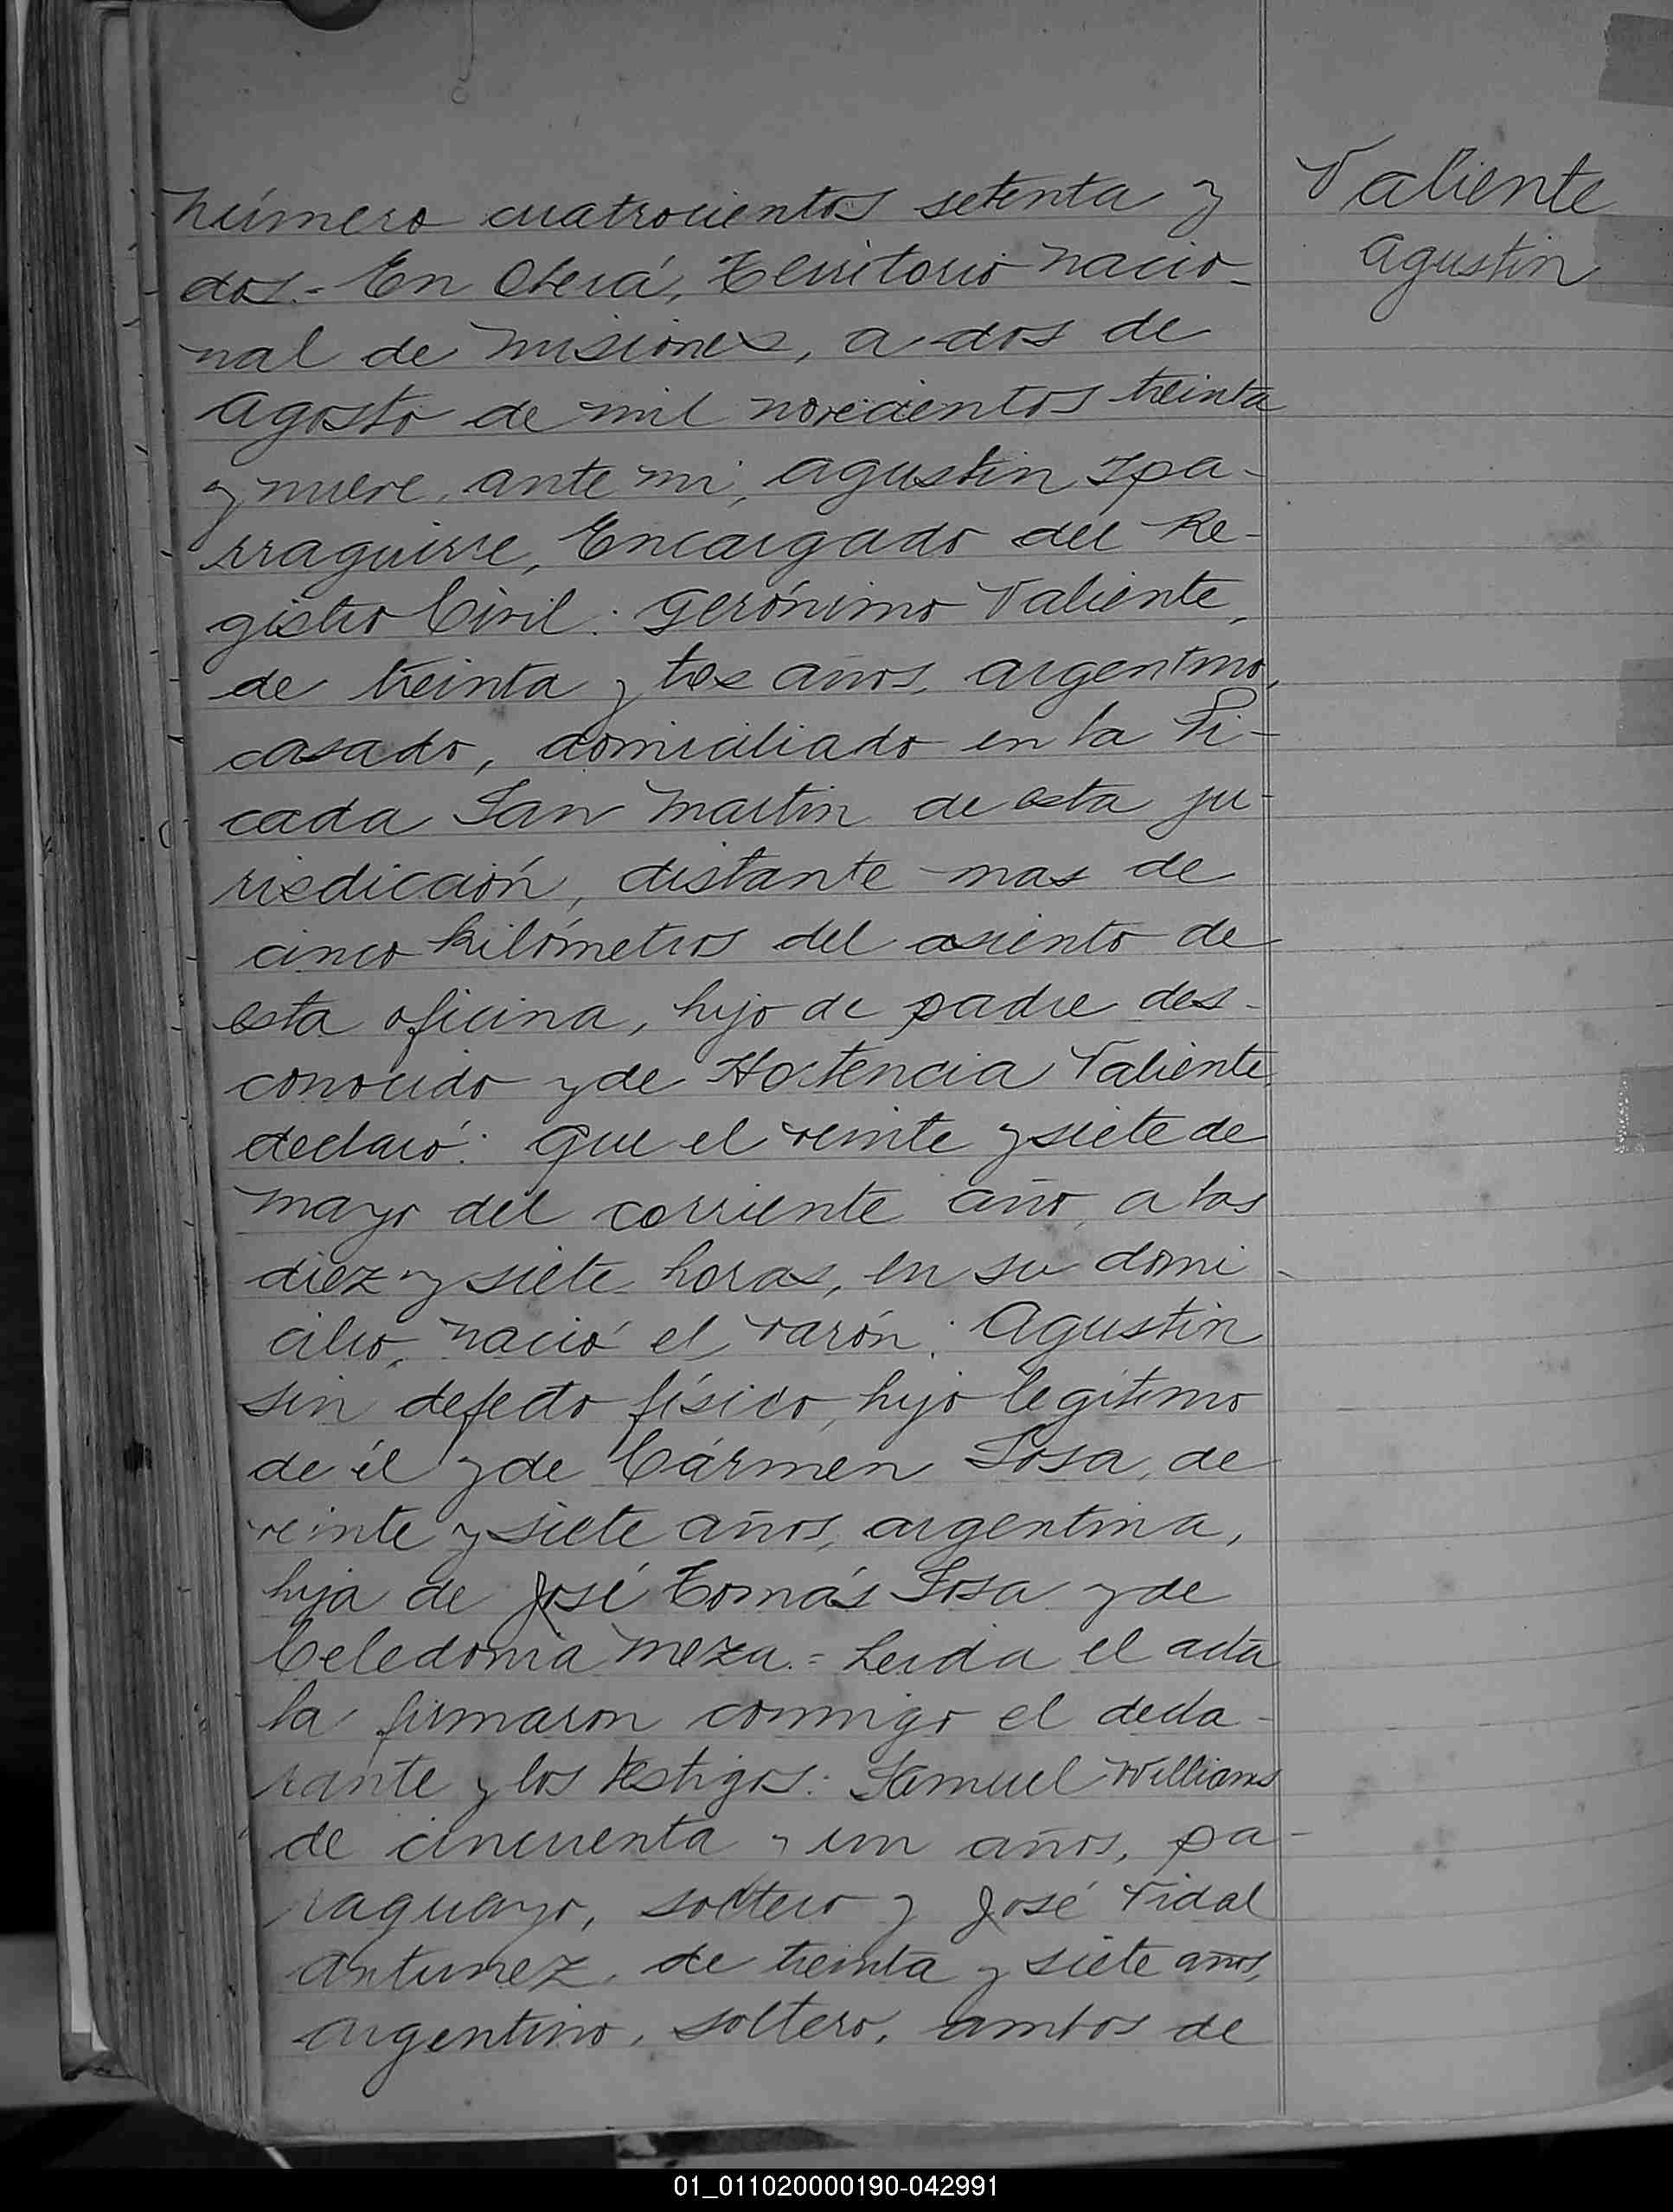 Número cuatrocientos setenta y
dos.- En Oberá, Territorio Nacio-
nal de Misiones, a dos de
Agosto de mil novecientos treinta
y nueve, ante mi, Agustin Ipa-
rraguirre, Encargado del Re-
gistro Civil: Gerónimo Valiente,
de treinta y tres años, argentino,
casado, domiciliado en la Pi-
cada San Martin de esta ju-
risdicción, distante mas de
cinco kilómetros del asiento de
esta oficina, hijo de padre des-
conocido y de Hortencia Valiente,
declaró: Que el veinte y siete de
Mayo del corriente año, a las
diez y siete horas, en su domi-
cilio, nació el varón: Agustin
sin defecto físico, hijo legítimo
de él y de Cármen Sosa, de
veinte y siete años, argentina,
hija de José Tomás Sosa y de
Celedonia Meza.= Leida el acta
la firmaron conmigo el decla-
rante y los testigos: Samuel Williams
de cincuenta y un años, pa-
raguayo, soltero y José Vidal
Antunez, de treinta y siete años,
argentino, soltero, ambos de
Valiente
Agustin
01_011020000190-042991